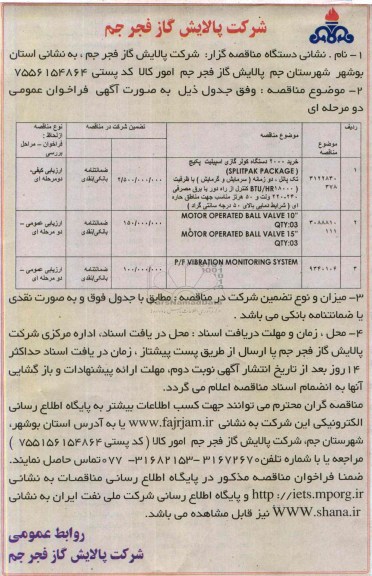 شرکت پالایش گاز فجر جم
۱- نام . نشانی دستگاه مناقصه گزار: شرکت پالایش گاز فجر جم ، به نشانی استان
بوشهر شهرستان جم پالایش گاز فجر جم امور کالا کد پستی ۷۵۵۶۱۵۴۸۶۴
۲- موضوع مناقصه : وفق جدول ذیل به صورت آگهی فراخوان عمومی
دو مرحله ای
ردیف
موضوع مناقصه
تضمین شرکت در مناقصه
نوع مناقصه
ازلحاظ :
فراخوان - مراحل
بررسی
۱
۳۱۲۲۸۳۰
۳۷۸
خرید ۲۰۰۰ دستگاه کولر گازی اسپیلیت پکیج
(SPLITPAK PACKAGE)
تک پانل ، دو زمانه ( سرمایش و گرمایش ) با ظرفیت
BTU/HR۱۸۰۰۰ کنترل از راه دور با برق مصرفی
۲۲۰-۲۳۰ ولت و ۵۰ هرتس مناسب جهت مناطق حاره
ای ( شرایط دمایی بالای ۵۰ درجه سانتی گراد )
۲/۵۰۰/۰۰۰/۰۰۰
ضمانتنامه
بانکی/نقدی
ارزیابی کیفی-
دومرحله ای
۲
۳۰۸۸۸۱۰
۱۱۱
MOTOR OPERATED BALL VALVE 10"
QTY:03
MOTOR OPERATED BALL VALVE 15"
QTY:03
۱۵۰/۰۰۰/۰۰۰
ضمانتنامه
بانکی/نقدی
ارزیابی عمومی -
دو مرحله ای
۳
۹۳۴۰۱۰۶
P/F VIBRATION MONITORING SYSTEM
۱۰۰/۰۰۰/۰۰۰
ضمانتنامه
بانکی/نقدی
ارزیابی عمومی -
دو مرحله ای
۳- میزان و نوع تضمین شرکت در مناقصه : مطابق با جدول فوق و به صورت نقدی
یا ضمانتنامه بانکی می باشد .
۴- محل ، زمان و مهلت دریافت اسناد : محل در یافت اسناد، اداره مرکزی شرکت
پالایش گاز فجر جم یا ارسال از طریق پست پیشتاز ، زمان در یافت اسناد حداکثر
۱۴روز بعد از تاریخ انتشار آگهی نوبت دوم، مهلت ارائه پیشنهادات و باز گشایی
آنها به انضمام اسناد مناقصه اعلام می گردد.
مناقصه گران محترم می توانند جهت کسب اطلاعات بیشتر به پایگاه اطلاع رسانی
الکترونیکی این شرکت به نشانی www.fajrjam.ir یا به آدرس استان بوشهر،
شهرستان جم، شرکت پالایش گاز فجر جم امور کالا ( کد پستی ۷۵۵۱۵۶۱۵۴۸۶۴ )
مراجعه یا با شماره تلفن ۳۱۶۷۲۶۷۰-۳۱۶۸۲۱۵۳-۰۷۷تماس حاصل نمایند.
ضمنا فراخوان مناقصه مذکور در پایگاه اطلاع رسانی مناقصات به نشانی
http://iets.mporg.ir و پایگاه اطلاع رسانی شرکت ملی نفت ایران به نشانی
WWW.shana.ir نیز قابل مشاهده می باشد.
روابط عمومی
شرکت پالایش گاز فجر جم